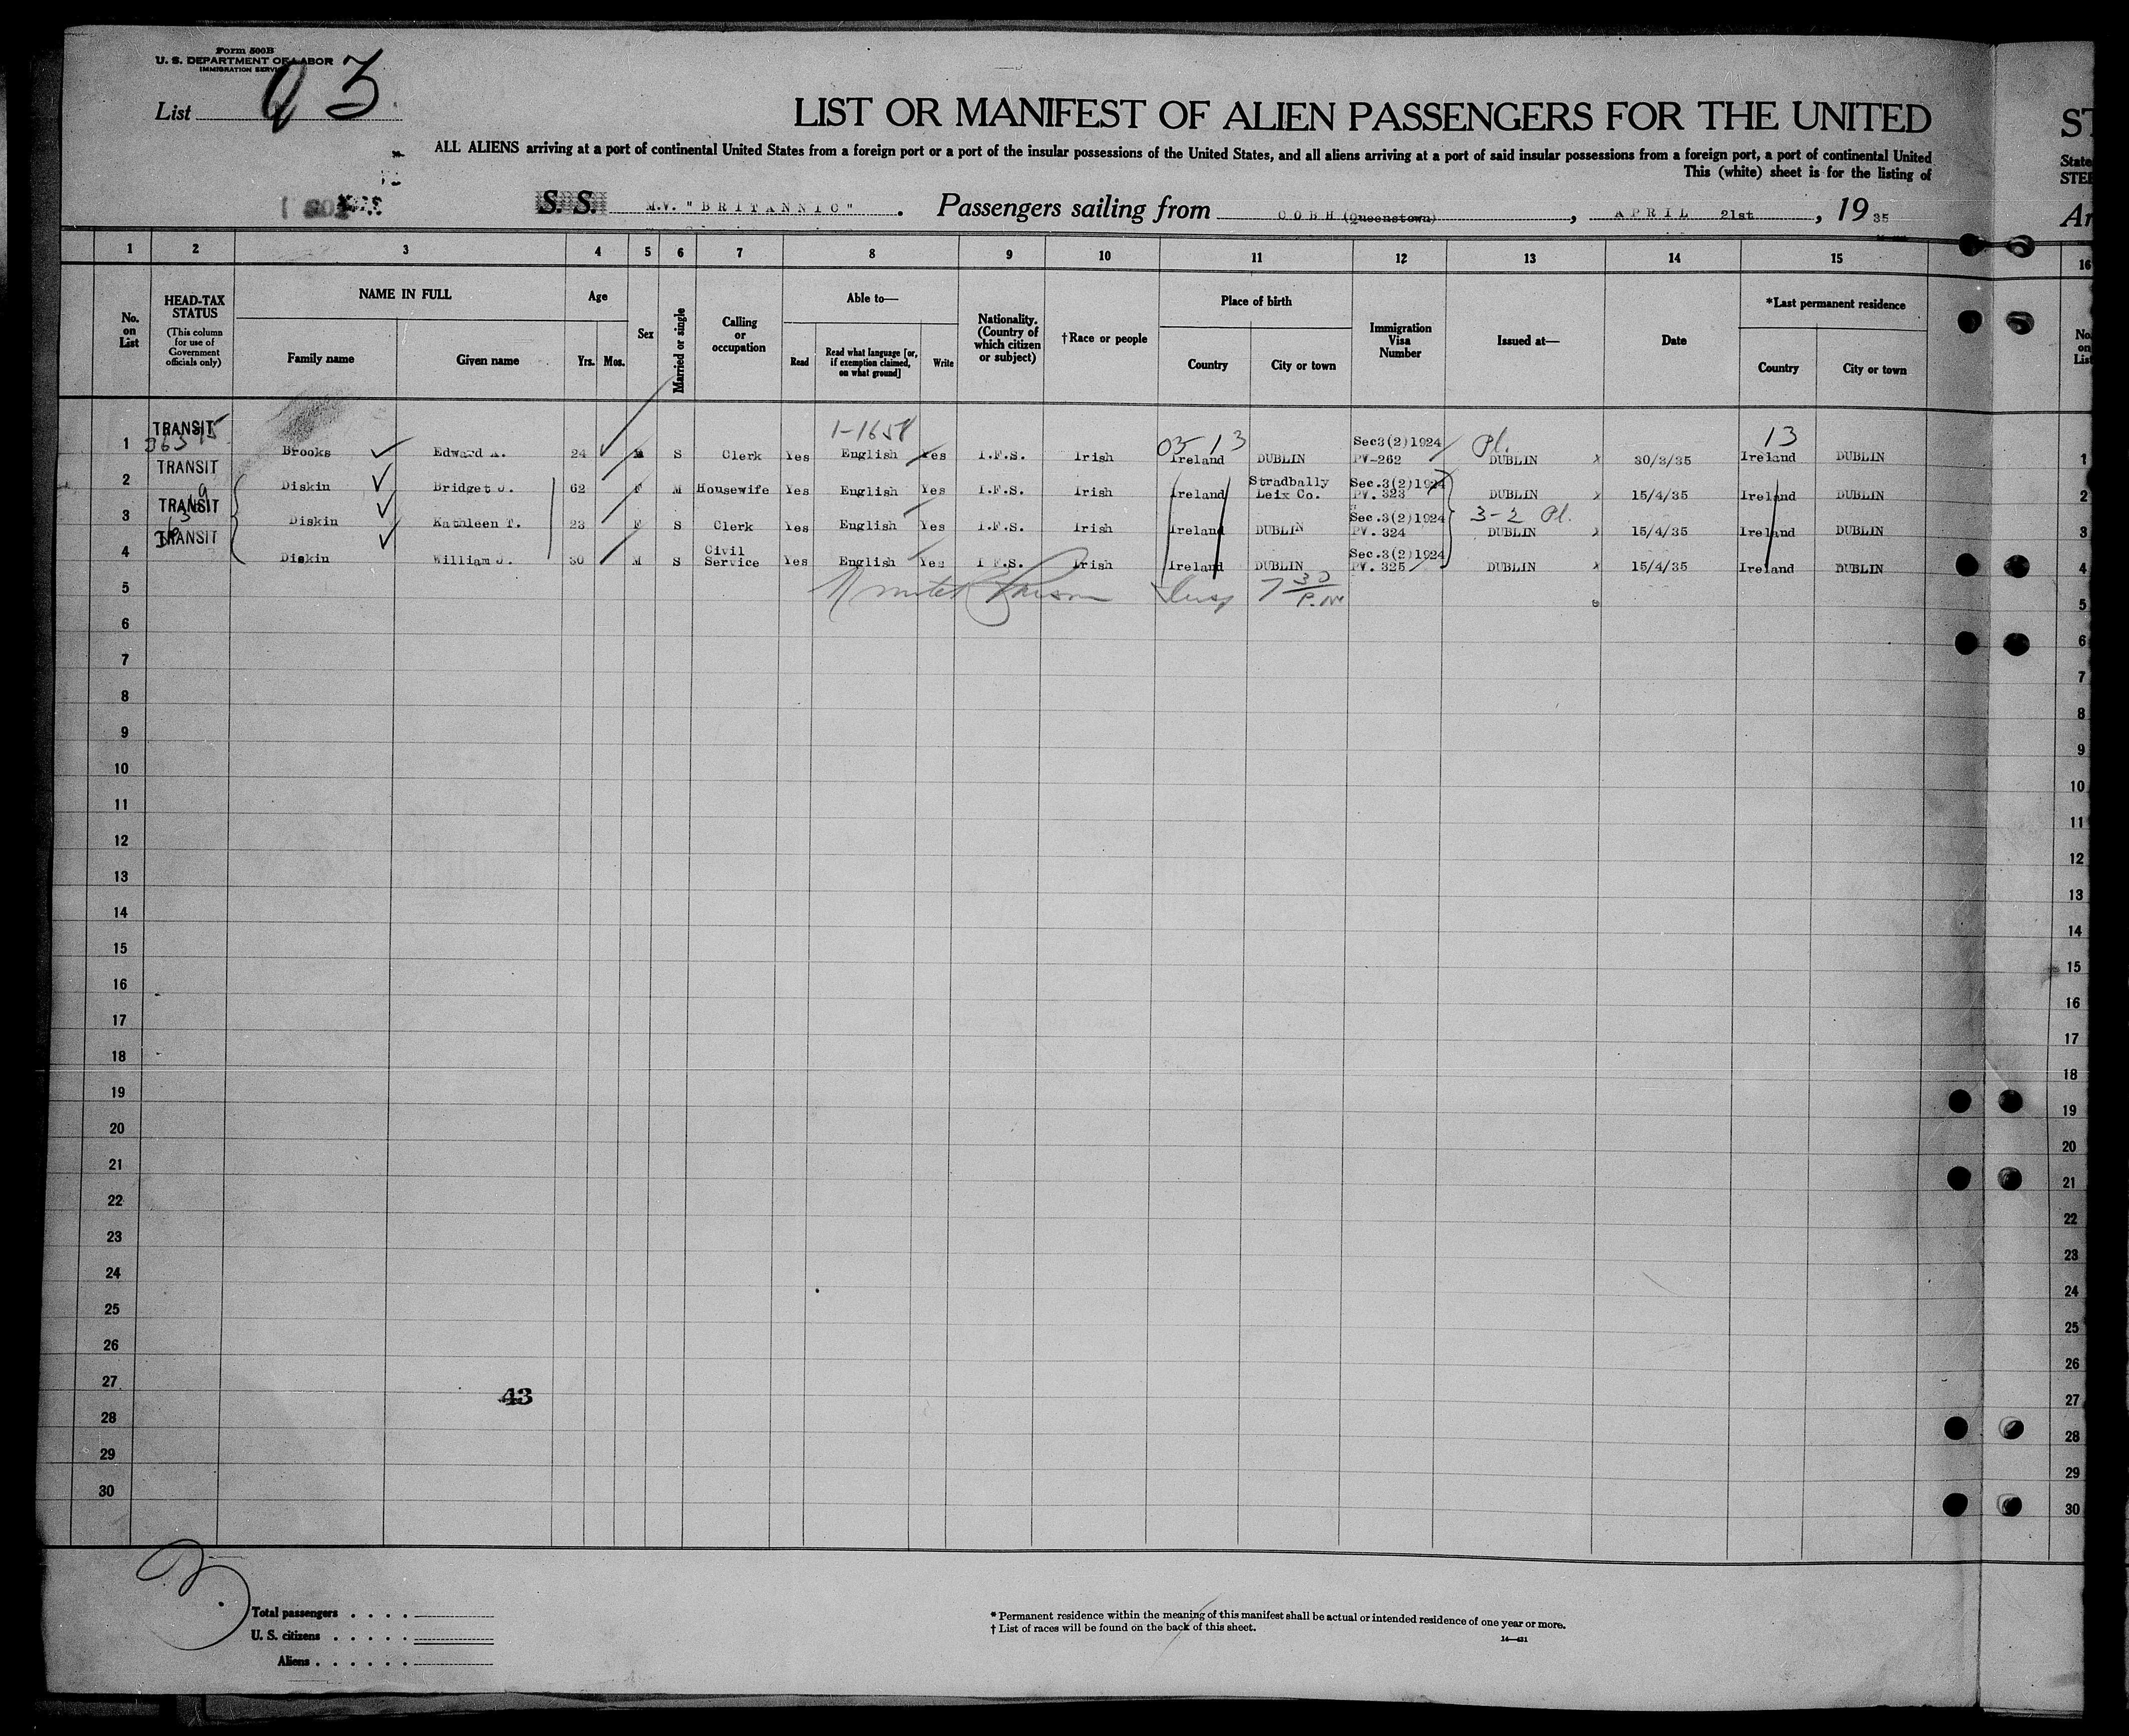 Form 500B
U. S. DEPARTMENT OF LABOR
IMMIGRATION SERVICE
List 3
LIST OR MANIFEST OF ALIEN PASSENGERS FOR THE UNITED ST
ALL ALIENS arriving at a port of continental United States from a foreign port or a port of the insular possessions of the United States, and all aliens arriving at a port of said insular possessions from a foreign port, a port of continental United State
This (white) sheet is for the listing of STEE
S. S. M.V. "BRITANNIC". Passengers sailing from COBH (Queenstown), APRIL 21st, 1935 Ar
1 2 3 4 5 6 7 8 9 10 11 12 13 14 15 16
No. on List
HEAD-TAX STATUS
(This column for use of Government officials only)
NAME IN FULL
Family name Given name
Age
Yrs. Mos.
Sex
Married or single
Calling or occupation
Able to—
Read
Read what language [or, if exemption claimed, on what ground]
Write
Nationality. (Country of which citizen or subject)
†Race or people
Place of birth
Country City or town
Immigration Visa Number
Issued at—
Date
*Last permanent residence
Country City or town
No. on List
1-1658
0513
Pl.
13
1 TRANSIT Brooks Edward A. 24 M S Clerk Yes English Yes I.F.S. Irish Ireland DUBLIN Sec3(2)1924 PV-262 DUBLIN 30/3/35 Ireland DUBLIN 1
2 TRANSIT Diskin Bridget J. 62 F M Housewife Yes English Yes I.F.S. Irish Ireland Stradbally Leix Co. Sec.3(2)1924 PV. 323 DUBLIN 15/4/35 Ireland DUBLIN 2
3-2 Pl.
3 TRANSIT Diskin Kathleen T. 23 F S Clerk Yes English Yes I.F.S. Irish Ireland DUBLIN Sec.3(2)1924 PV. 324 DUBLIN 15/4/35 Ireland DUBLIN 3
4 TRANSIT Diskin William J. 30 M S Civil Service Yes English Yes I F.S. Irish Ireland DUBLIN Sec.3(2)1924 PV. 325 DUBLIN 15/4/35 Ireland DUBLIN 4
5 Insp 7 30 P.M. 5
6 6
7 7
8 8
9 9
10 10
11 11
12 12
13 13
14 14
15 15
16 16
17 17
18 18
19 19
20 20
21 21
22 22
23 23
24 24
25 25
26 26
27 27
43
28 28
29 29
30 30
Total passengers . . . .
U. S. citizens . . . . .
Aliens . . . . . .
* Permanent residence within the meaning of this manifest shall be actual or intended residence of one year or more.
† List of races will be found on the back of this sheet.
14—431